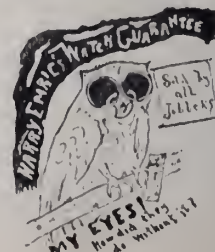 HARRY EMRIC'S WATCH GUARANTEE
Sold By
all
MY EYES!
How did they
do without it?